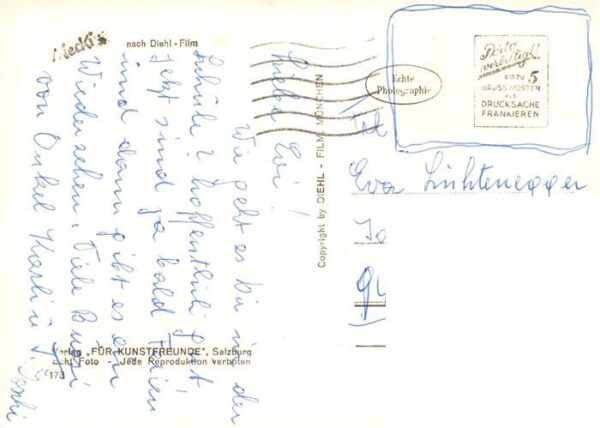 Mecki
nach Diehl - Film
Liebe Evi!
Wie geht es dir in der
Schule? hoffentlich gut
jetzt sind ja bald Ferien
und dann gibt es ein
Wiedersehen. Viele Bussi
von Onkel Karli u.
Copyright by DIEHL - FILM, MÜNCHEN
Verlag „FÜR KUNSTFREUNDE", Salzburg
Echt Foto - Jede Reproduktion verboten
173
Echte
Photographie
Porto
verbilligt!
BIS ZU 5
GRUSSWORTEN
ALS
DRUCKSACHE
FRANKIEREN
Eva Lichtenegger